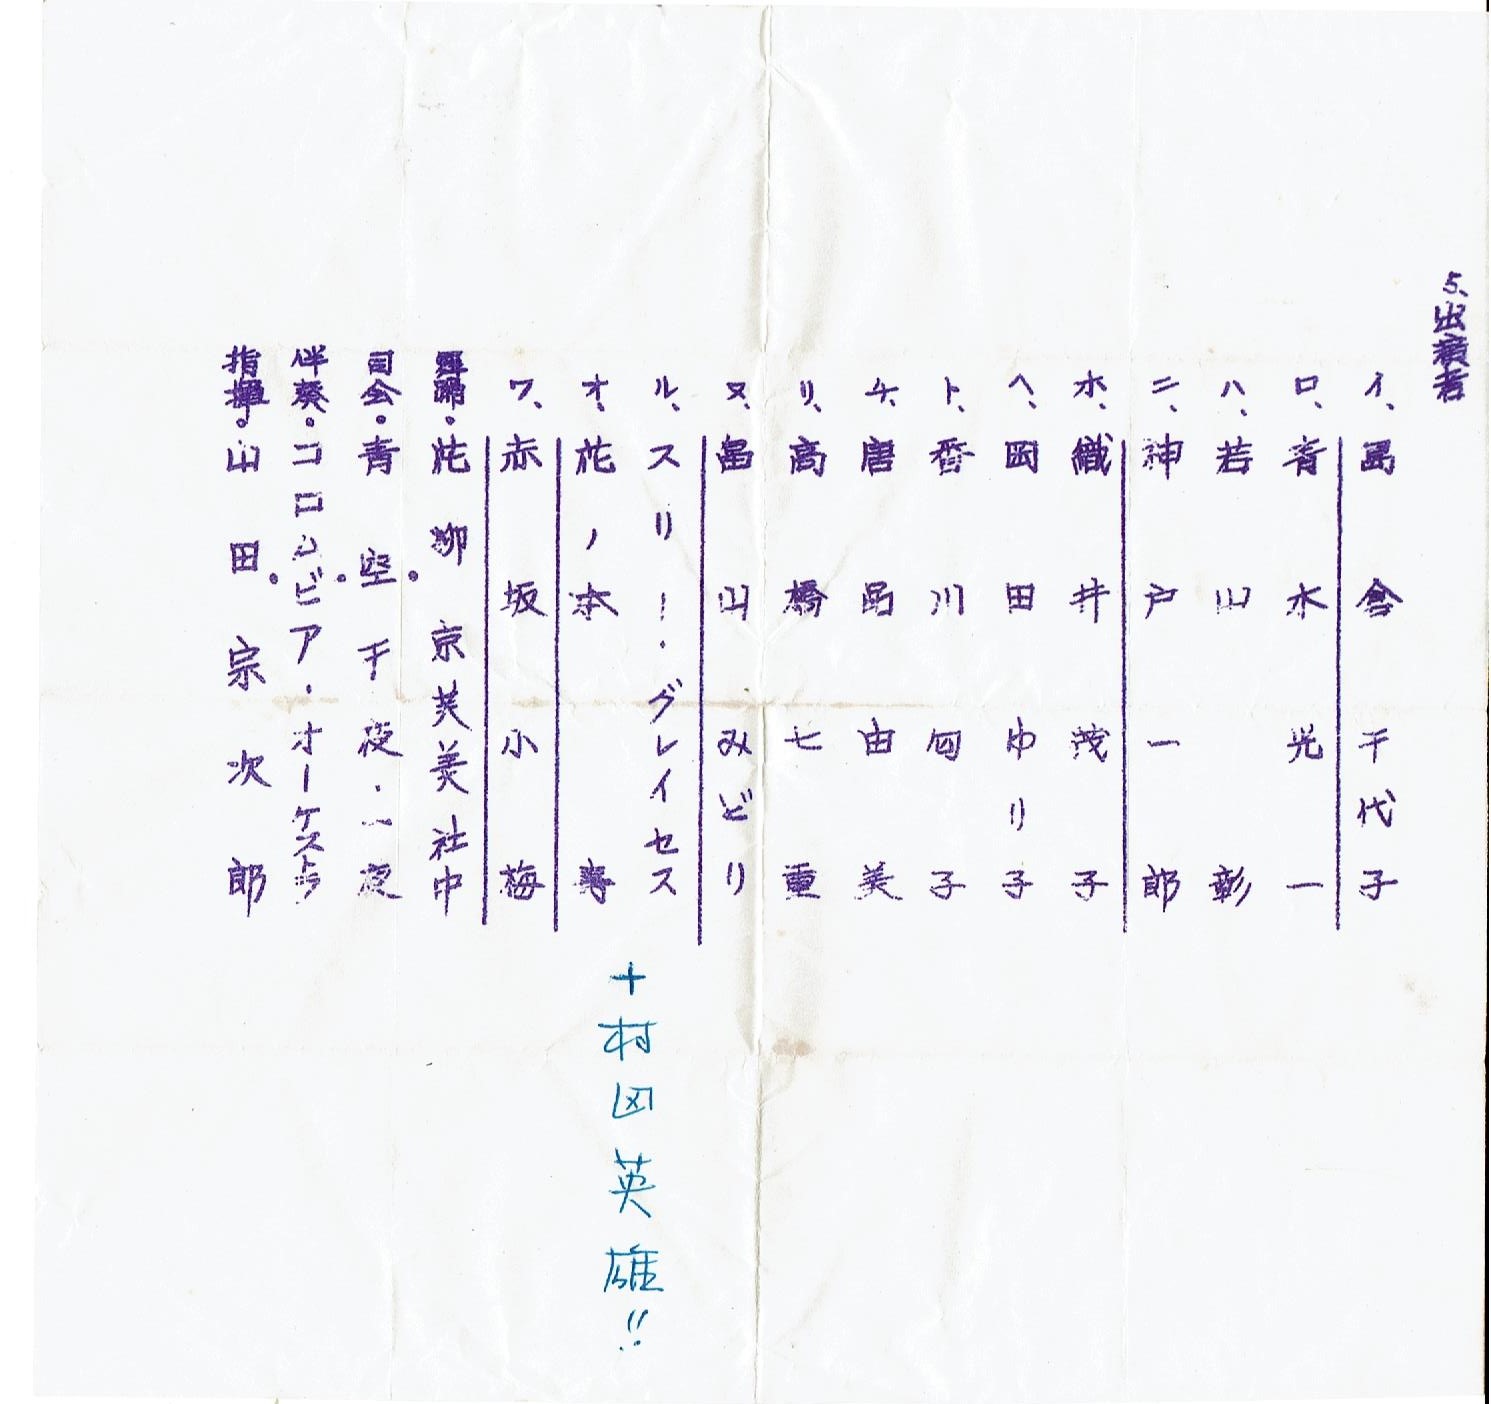 5、出演者
イ、島倉千代子
ロ、青木光一
ハ、若山彰
ニ、神戸一郎
ホ、織井茂子
ヘ、岡田ゆり子
ト、香川匂子
チ、唐邑由美
リ、高橋七重
ヌ、畠山みどり
ル、スリー・グレイセス
オ、花ノ本寿
ワ、赤坂小梅
舞踊・花柳京芙美社中
司会・青空千夜・一夜
伴奏・コロムビア・オーケストラ
指揮・山田宗次郎
+村田英雄!!